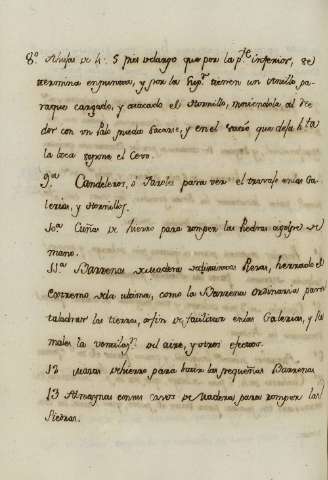 8.º Abujas de h.º 5 pies de largo que por la p.te inferior, se
termina en punta, y por la sup.or tienen un anillo, pa-
raque cargado, y atacado el Hornillo, moviendola al de-
dor con un palo pueda sacarse, y en el vacio que deja h.ta
la boca se pone el Cevo.
9.ª Candeleros, ó Faroles para ver el travajo en las Ga-
lerias, y Hornillos.
10.ª Cuñas de hierro para romper las Piedras a golpe de
mano.
11.ª Barrenas de Madera de Piezas, herrado el
extremo de la ultima, como la Barrena ordinaria para
taladrar las tierras, a fin de facilitar en las Galerias, y
la del aire, y otros efectos.
12 Mazas de hierro para batir las pequeñas Barrenas
13 Almaganas con sus cavos de Madera, para romper las
Piedras.